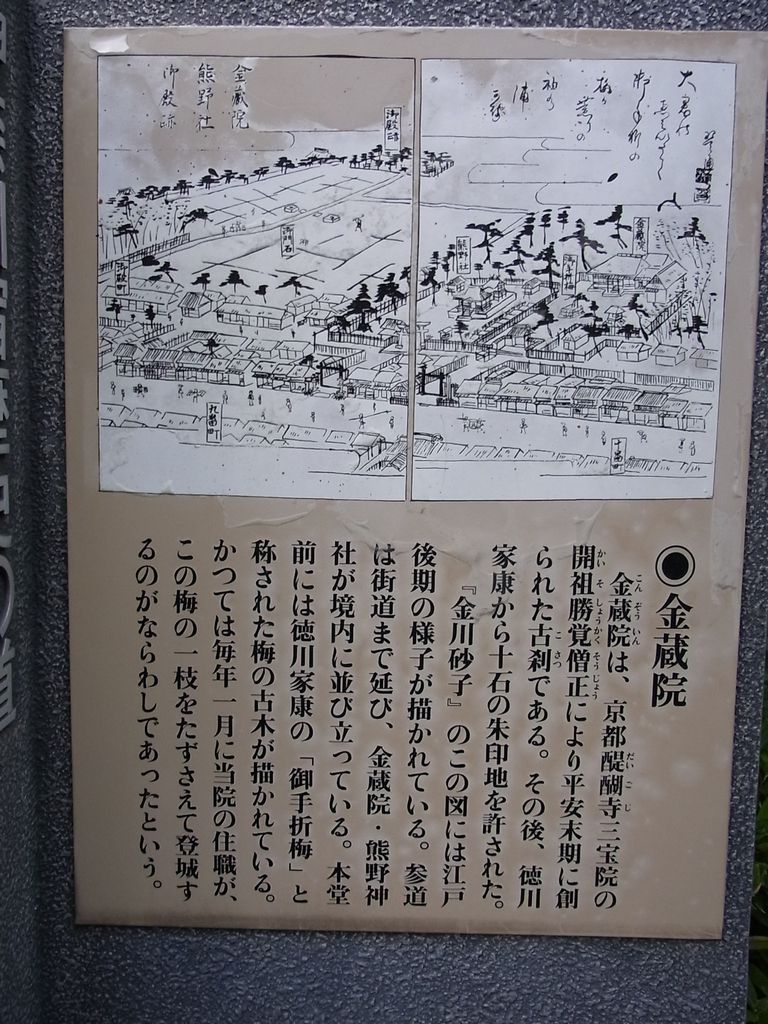 ◉金蔵院
金蔵院は、京都醍醐寺三宝院の
開祖勝覚僧正により平安末期に創
られた古刹である。その後、徳川
家康から十石の朱印地を許された。
『金川砂子』のこの図には江戸
後期の様子が描かれている。参道
は街道まで延び、金蔵院・熊野神
社が境内に並び立っている。本堂
前には徳川家康の「御手折梅」と
称された梅の古木が描かれている。
かつては毎年一月に当院の住職が、
この梅の一枝をたずさえて登城す
るのがならわしであったという。
こんぞういん
だいごじ
かいそしょうかくそうじょう
こさつ
金蔵院
熊野社
御殿跡
御殿跡
金蔵院
御手折梅
熊野社
御殿町
九番町
十番町